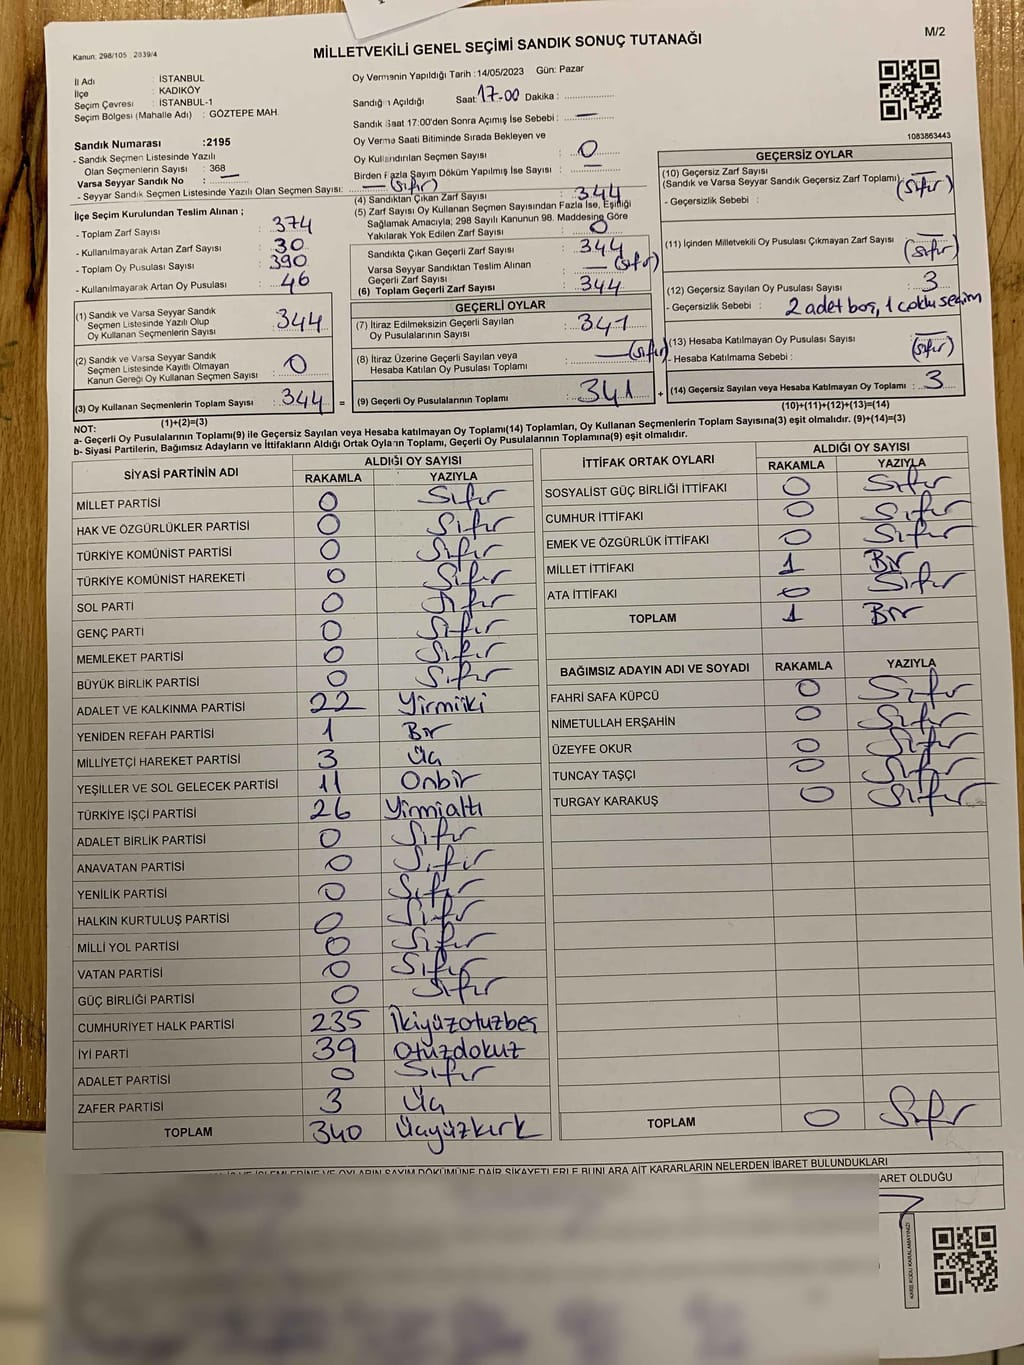 Kanun: 298/105 2839/4
MİLLETVEKİLİ GENEL SEÇİMİ SANDIK SONUÇ TUTANAĞI
M/2
İl Adı : İSTANBUL
İlçe : KADIKÖY
Seçim Çevresi : İSTANBUL-1
Seçim Bölgesi (Mahalle Adı) : GÖZTEPE MAH.
Oy Vermenin Yapıldığı Tarih : 14/05/2023 Gün: Pazar
Sandığın Açıldığı Saat: 17.00 Dakika :
Sandık Saat 17:00'den Sonra Açımış İse Sebebi : —
Oy Verme Saati Bitiminde Sırada Bekleyen ve
Oy Kullandırılan Seçmen Sayısı : 0
Birden Fazla Sayım Döküm Yapılmış İse Sayısı : —
1083863443
Sandık Numarası : 2195
- Sandık Seçmen Listesinde Yazılı
Olan Seçmenlerin Sayısı : 368
Varsa Seyyar Sandık No : —
- Seyyar Sandık Seçmen Listesinde Yazılı Olan Seçmen Sayısı: — (Sıfır)
İlçe Seçim Kurulundan Teslim Alınan ;
- Toplam Zarf Sayısı : 374
- Kullanılmayarak Artan Zarf Sayısı : 30
- Toplam Oy Pusulası Sayısı : 390
- Kullanılmayarak Artan Oy Pusulası : 46
(1) Sandık ve Varsa Seyyar Sandık
Seçmen Listesinde Yazılı Olup
Oy Kullanan Seçmenlerin Sayısı : 344
(2) Sandık ve Varsa Seyyar Sandık
Seçmen Listesinde Kayıtlı Olmayan
Kanun Gereği Oy Kullanan Seçmen Sayısı : 0
(3) Oy Kullanan Seçmenlerin Toplam Sayısı : 344 =
(1)+(2)=(3)
(4) Sandıktan Çıkan Zarf Sayısı : 344
(5) Zarf Sayısı Oy Kullanan Seçmen Sayısından Fazla İse, Eşitliği
Sağlamak Amacıyla; 298 Sayılı Kanunun 98. Maddesine Göre
Yakılarak Yok Edilen Zarf Sayısı : 0
Sandıkta Çıkan Geçerli Zarf Sayısı : 344
Varsa Seyyar Sandıktan Teslim Alınan
Geçerli Zarf Sayısı : — (Sıfır)
(6) Toplam Geçerli Zarf Sayısı : 344
GEÇERLİ OYLAR
(7) İtiraz Edilmeksizin Geçerli Sayılan
Oy Pusulalarının Sayısı : 341
(8) İtiraz Üzerine Geçerli Sayılan veya
Hesaba Katılan Oy Pusulası Toplamı : — (Sıfır)
(9) Geçerli Oy Pusulalarının Toplamı : 341 +
GEÇERSİZ OYLAR
(10) Geçersiz Zarf Sayısı
(Sandık ve Varsa Seyyar Sandık Geçersiz Zarf Toplamı) : — (Sıfır)
- Geçersizlik Sebebi :
(11) İçinden Milletvekili Oy Pusulası Çıkmayan Zarf Sayısı : — (Sıfır)
(12) Geçersiz Sayılan Oy Pusulası Sayısı : 3
- Geçersizlik Sebebi : 2 adet boş, 1 çoklu seçim
(13) Hesaba Katılmayan Oy Pusulası Sayısı : — (Sıfır)
- Hesaba Katılmama Sebebi :
(14) Geçersiz Sayılan veya Hesaba Katılmayan Oy Toplamı : 3
(10)+(11)+(12)+(13)=(14)
NOT:
a- Geçerli Oy Pusulalarının Toplamı(9) ile Geçersiz Sayılan veya Hesaba Katılmayan Oy Toplamı(14) Toplamları, Oy Kullanan Seçmenlerin Toplam Sayısına(3) eşit olmalıdır. (9)+(14)=(3)
b- Siyasi Partilerin, Bağımsız Adayların ve İttifakların Aldığı Ortak Oyların Toplamı, Geçerli Oy Pusulalarının Toplamına(9) eşit olmalıdır.
SİYASİ PARTİNİN ADI ALDIĞI OY SAYISI
RAKAMLA YAZIYLA
MİLLET PARTİSİ 0 Sıfır
HAK VE ÖZGÜRLÜKLER PARTİSİ 0 Sıfır
TÜRKİYE KOMÜNİST PARTİSİ 0 Sıfır
TÜRKİYE KOMÜNİST HAREKETİ 0 Sıfır
SOL PARTİ 0 Sıfır
GENÇ PARTİ 0 Sıfır
MEMLEKET PARTİSİ 0 Sıfır
BÜYÜK BİRLİK PARTİSİ 0 Sıfır
ADALET VE KALKINMA PARTİSİ 22 Yirmiiki
YENİDEN REFAH PARTİSİ 1 Bir
MİLLİYETÇİ HAREKET PARTİSİ 3 Üç
YEŞİLLER VE SOL GELECEK PARTİSİ 11 Onbir
TÜRKİYE İŞÇİ PARTİSİ 26 Yirmialtı
ADALET BİRLİK PARTİSİ 0 Sıfır
ANAVATAN PARTİSİ 0 Sıfır
YENİLİK PARTİSİ 0 Sıfır
HALKIN KURTULUŞ PARTİSİ 0 Sıfır
MİLLİ YOL PARTİSİ 0 Sıfır
VATAN PARTİSİ 0 Sıfır
GÜÇ BİRLİĞİ PARTİSİ 0 Sıfır
CUMHURİYET HALK PARTİSİ 235 İkiyüzotuzbeş
İYİ PARTİ 39 Otuzdokuz
ADALET PARTİSİ 0 Sıfır
ZAFER PARTİSİ 3 Üç
TOPLAM 340 Üçyüzkırk
İTTİFAK ORTAK OYLARI ALDIĞI OY SAYISI
RAKAMLA YAZIYLA
SOSYALİST GÜÇ BİRLİĞİ İTTİFAKI 0 Sıfır
CUMHUR İTTİFAKI 0 Sıfır
EMEK VE ÖZGÜRLÜK İTTİFAKI 0 Sıfır
MİLLET İTTİFAKI 1 Bir
ATA İTTİFAKI 0 Sıfır
TOPLAM 1 Bir
BAĞIMSIZ ADAYIN ADI VE SOYADI RAKAMLA YAZIYLA
FAHRİ SAFA KÜPCÜ 0 Sıfır
NİMETULLAH ERŞAHİN 0 Sıfır
ÜZEYFE OKUR 0 Sıfır
TUNCAY TAŞÇI 0 Sıfır
TURGAY KARAKUŞ 0 Sıfır
TOPLAM 0 Sıfır
İŞLEMLERİNE VE OYLARIN SAYIM DÖKÜMÜNE DAİR ŞİKAYETLERLE BUNLARA AİT KARARLARIN NELERDEN İBARET BULUNDUKLARI
ARET OLDUĞU
KARE KODU KARALAMAYINIZ!